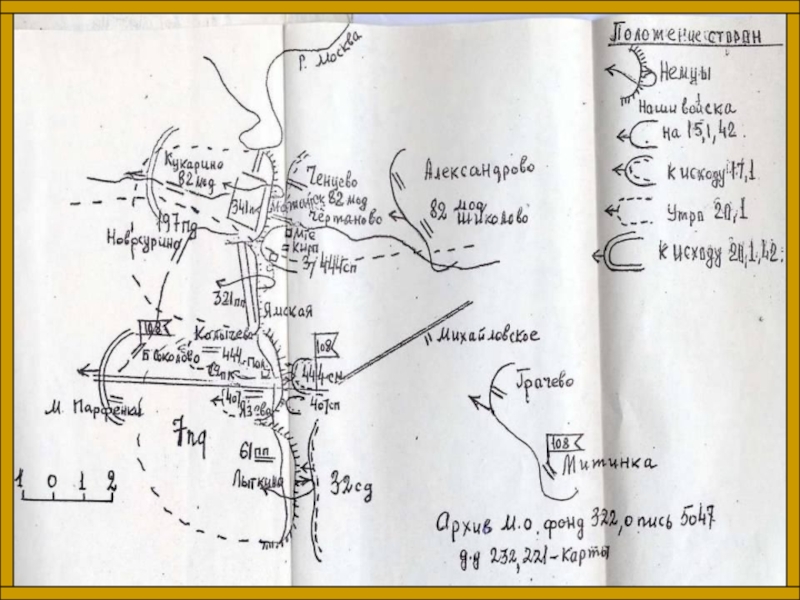 Положение сторон
Немцы
Наши войска
на 15,1,42.
К исходу 17,1
Утро 20,1
К исходу 20,1,42.
р. Москва
Кукарино
82 мсд
Ченцево
82 мсд
Чертаново
Александрово
82 мсд
Шиколово
341пп
197пд
Новосурино
МТС
Кирп
37 444сп
321пп
Ямская
108
108
Колычево
Б Соколово
444
Михайловское
444сп
407
407сп
Язево
М. Парфенки
7пд
61пп
Лыткино
32сд
Грачево
108
Митинка
1 0 1 2
Архив М.О. фонд 322, опись 5047
д.д 232,221-карты